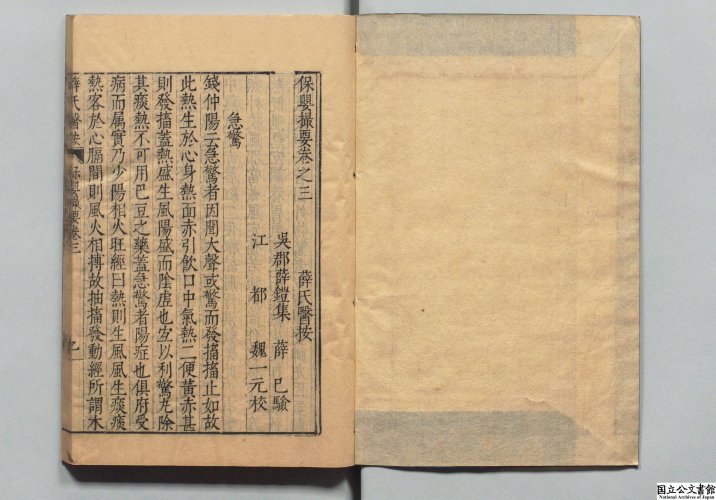 保嬰撮要卷之三
薛氏醫按
吳郡薛鎧集 薛己驗
江都 魏一元校
急驚
錢仲陽云急驚者因聞大聲或驚而發搐搐止如故
此熱生於心身熱面赤引飲口中氣熱二便黃赤甚
則發搐蓋熱盛生風陽盛而陰虛也宜以利驚丸除
其痰熱不可用巴豆之藥蓋急驚者陽症也俱府受
病而属實乃少陽相火旺經曰熱則生風風生痰痰
熱客於心膈間則風火相搏故抽搐發動經所謂木
薛氏醫按 保嬰撮要卷三
国立公文書館
National Archives of Japan